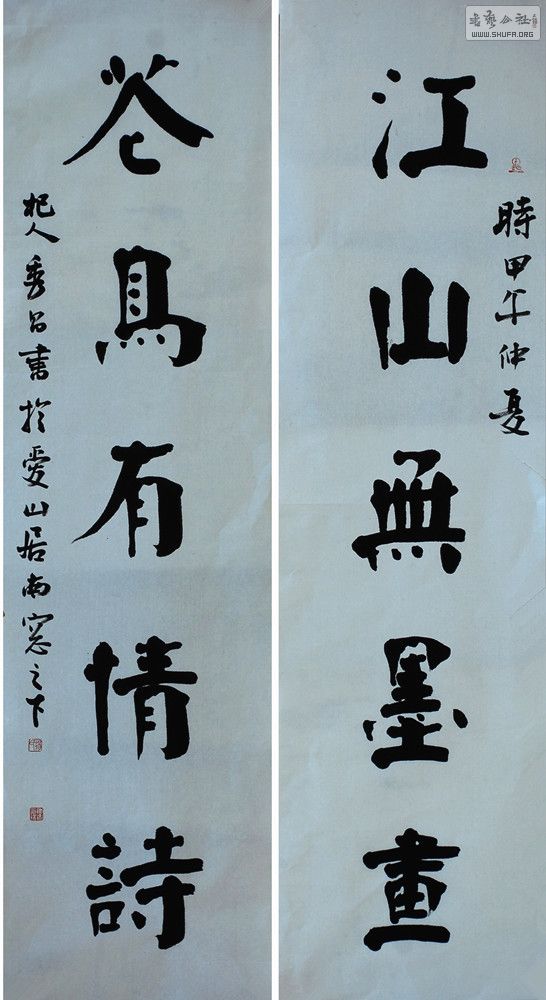 江山無墨畫
時甲午仲夏
花鳥有情詩
杞人秀召書於愛山居南窓之下
書艺公社
WWW.SHUFA.ORG